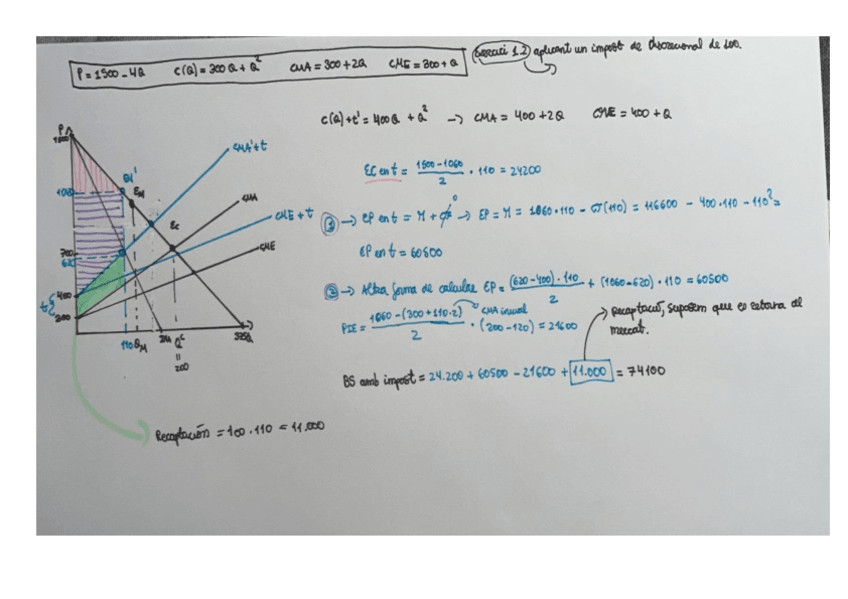 P = 1500 - 4Q C(Q) = 300Q + Q² CMA = 300 + 2Q CME = 300 + Q
Exercici 1.2) aplicant un impost de 100.
C(Q) + t' = 400Q + Q² -> CMA = 400 + 2Q CME = 400 + Q
EC en t = (1500 - 1060)/2 · 110 = 24200
① -> EP en t = π + CF⁰ -> EP = π = 1060 · 110 - CT(110) = 116600 - 400 · 110 - 110² =
EP en t = 60500
② -> Altra forma de calcular EP = (620 - 400) · 110/2 + (1060 - 620) · 110 = 60500
PIE = (1060 - (300 + 110 · 2))/2 · (200 - 120) = 21600
CMA inicial
Recaptació, suposem que es retorna al
mercat.
BS amb impost = 24.200 + 60500 - 21600 + 11.000 = 74100
P
1500
1060
700
620
t
400
300
CMA' + t
CMA
CME + t
CME
EM
EC
110 QM
QC
=
200
375 Q
Recaptación = 100 · 110 = 11.000